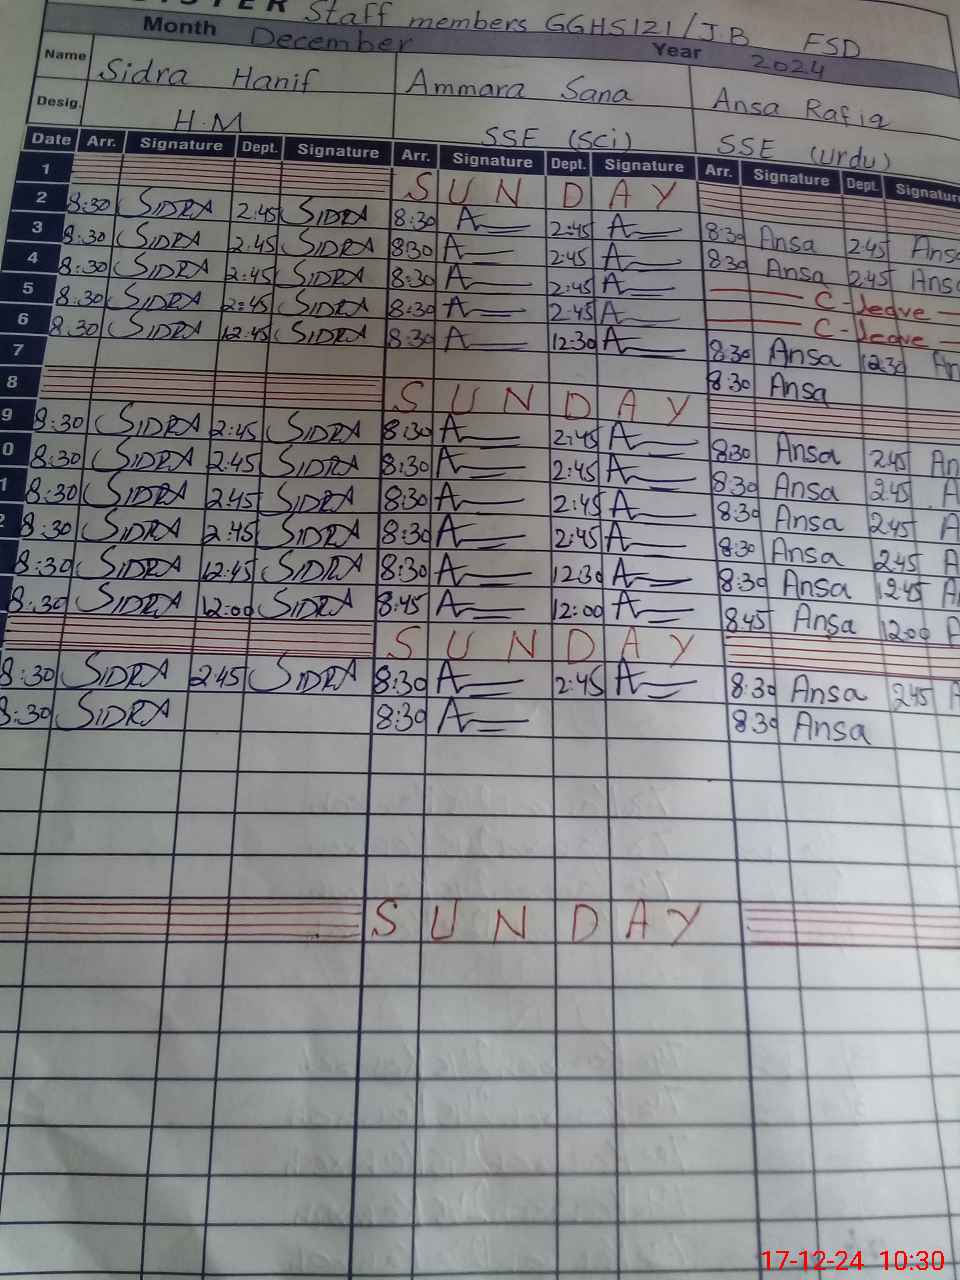 Staff members GGHS 121/J.B FSD
Month December Year 2024
Name Sidra Hanif Ammara Sana Ansa Rafiq
Desig. H.M SSE (Sci) SSE (Urdu)
Date Arr. Signature Dept. Signature Arr. Signature Dept. Signature Arr. Signature Dept. Signature
1 SUNDAY
2 8:30 SIDRA 2:45 SIDRA 8:30 A 2:45 A 8:30 Ansa 2:45 Ansa
3 8:30 SIDRA 2:45 SIDRA 8:30 A 2:45 A 8:30 Ansa 2:45 Ansa
4 8:30 SIDRA 2:45 SIDRA 8:30 A 2:45 A C-leave
5 8:30 SIDRA 2:45 SIDRA 8:30 A 2:45 A C-leave
6 8:30 SIDRA 12:45 SIDRA 8:30 A 12:30 A 8:30 Ansa 12:30 An
7 8:30 Ansa
8 SUNDAY
9 8:30 SIDRA 2:45 SIDRA 8:30 A 2:45 A 8:30 Ansa 2:45 An
0 8:30 SIDRA 2:45 SIDRA 8:30 A 2:45 A 8:30 Ansa 2:45 A
1 8:30 SIDRA 2:45 SIDRA 8:30 A 2:45 A 8:30 Ansa 2:45 A
2 8:30 SIDRA 2:45 SIDRA 8:30 A 2:45 A 8:30 Ansa 2:45 A
8:30 SIDRA 12:45 SIDRA 8:30 A 12:30 A 8:30 Ansa 12:45 A
8:30 SIDRA 12:00 SIDRA 8:45 A 12:00 A 8:45 Ansa 12:00 A
SUNDAY
8:30 SIDRA 2:45 SIDRA 8:30 A 2:45 A 8:30 Ansa 2:45 A
8:30 SIDRA 8:30 A 8:30 Ansa
SUNDAY
17-12-24 10:30